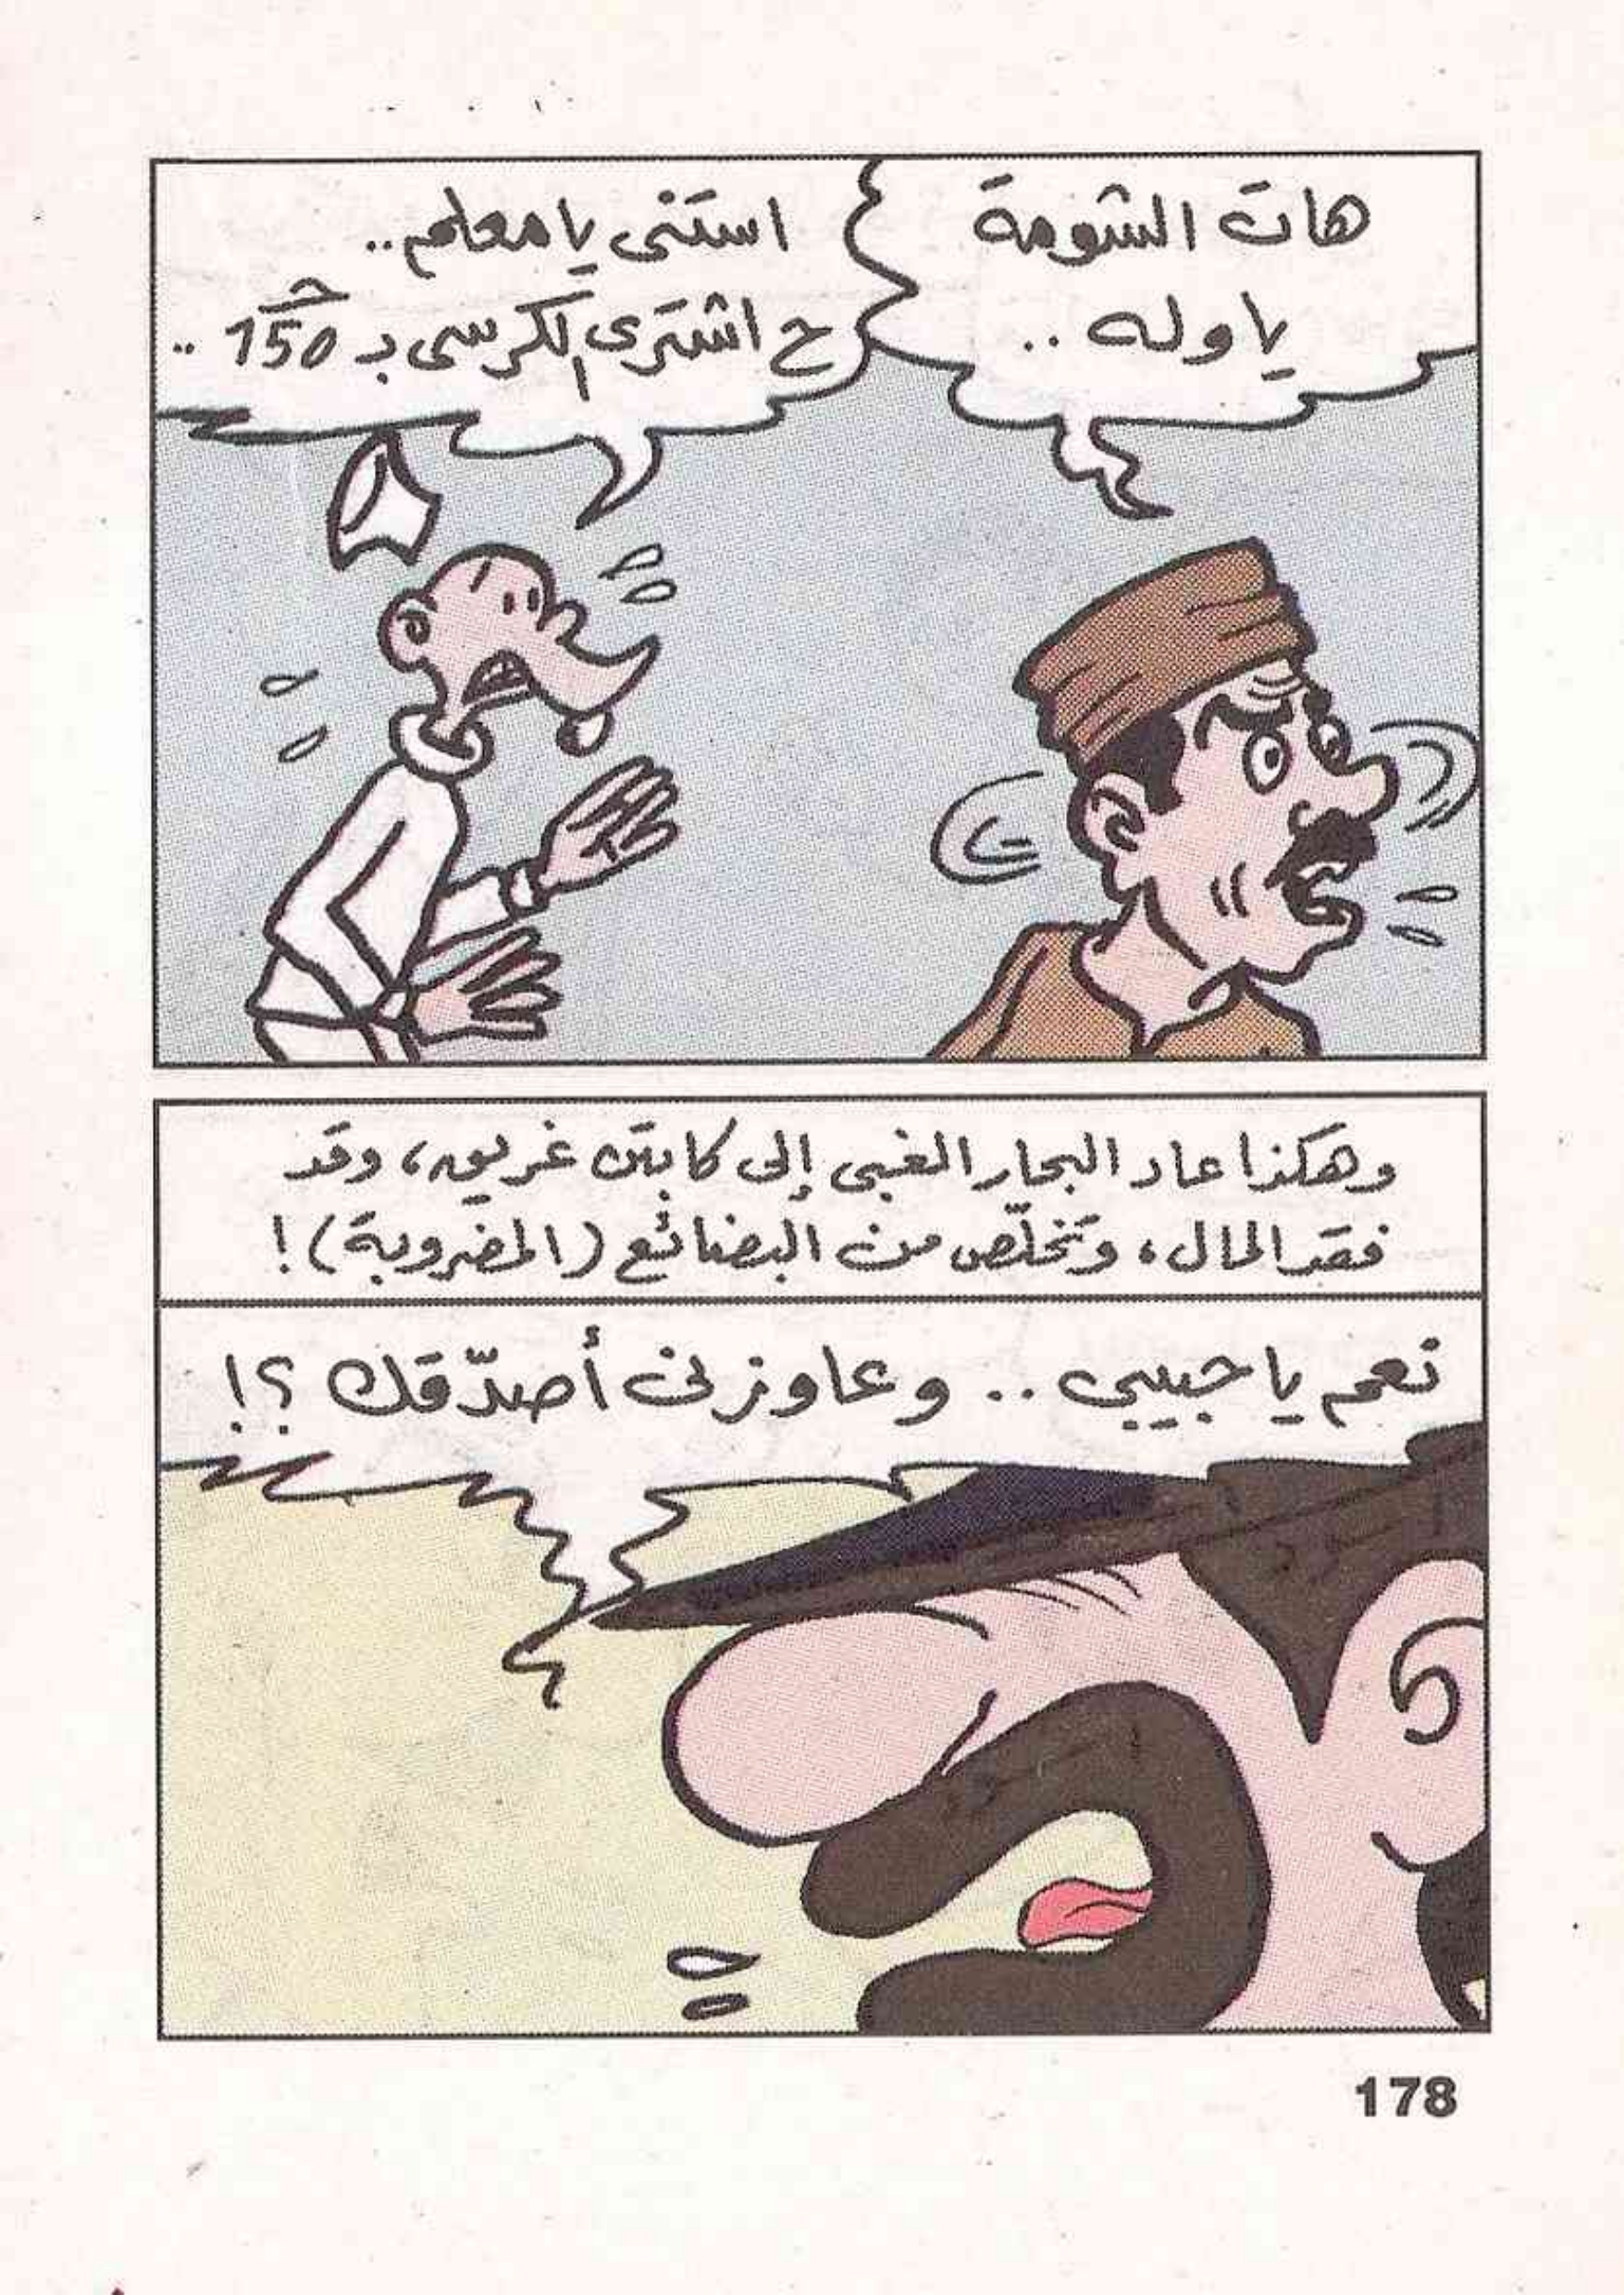 هات الشومة
يا وله ..
استنى يا معلم ..
ح اشترى الكرسى بـ 150 جـ ..
وهكذا عاد البحار الغبى إلى كابتن غريق، وقد
فقد المال، وتخلّص من البضائع (المضروبة)!
نعم يا حبيبي .. وعاوزنى أصدّقك ؟!
178